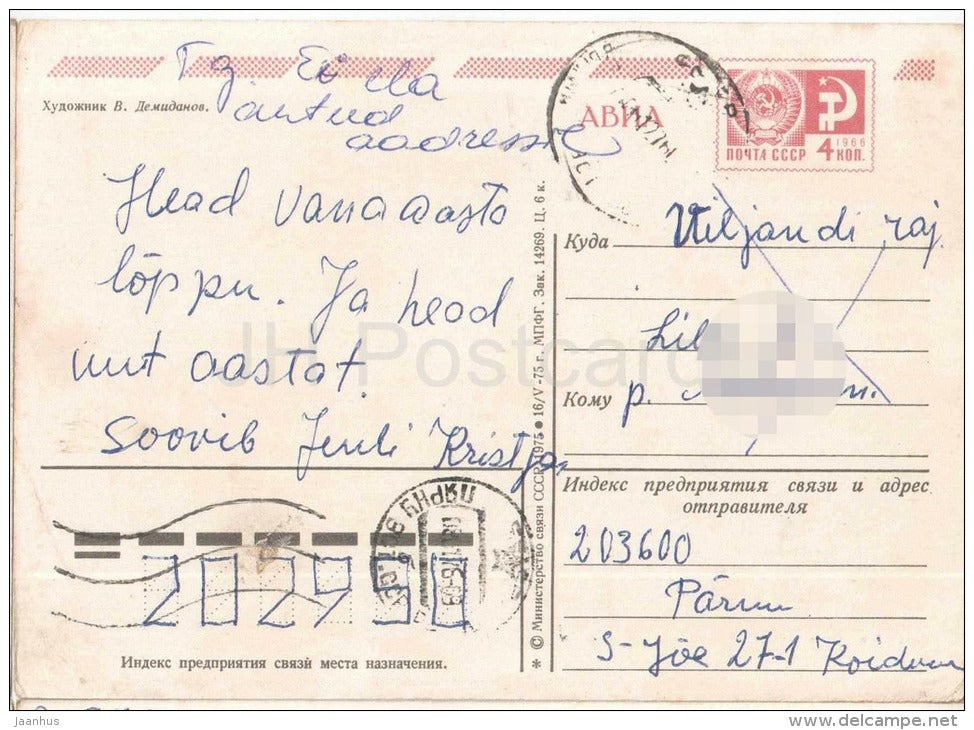 Tg. Ei ela
antud
aadressil
Художник В. Демиданов.
АВИА
ПОЧТА СССР 4 КОП.
1966
Head vana aasta
lõppu. Ja head
uut aastat.
Soovib Kristjan
Куда Viljandi raj.
Lil
Кому p. n.
Индекс предприятия связи и адрес
отправителя
203600
Pärnu
S-Jõe 27-1
© Министерство связи СССР, 1975 ● 16/V-75 г. МПФГ. Зак. 14269. Ц. 6 к.
ПЯРНУ
Индекс предприятия связи места назначения.
JH Postcards
jaanhus
www.delcampe.net